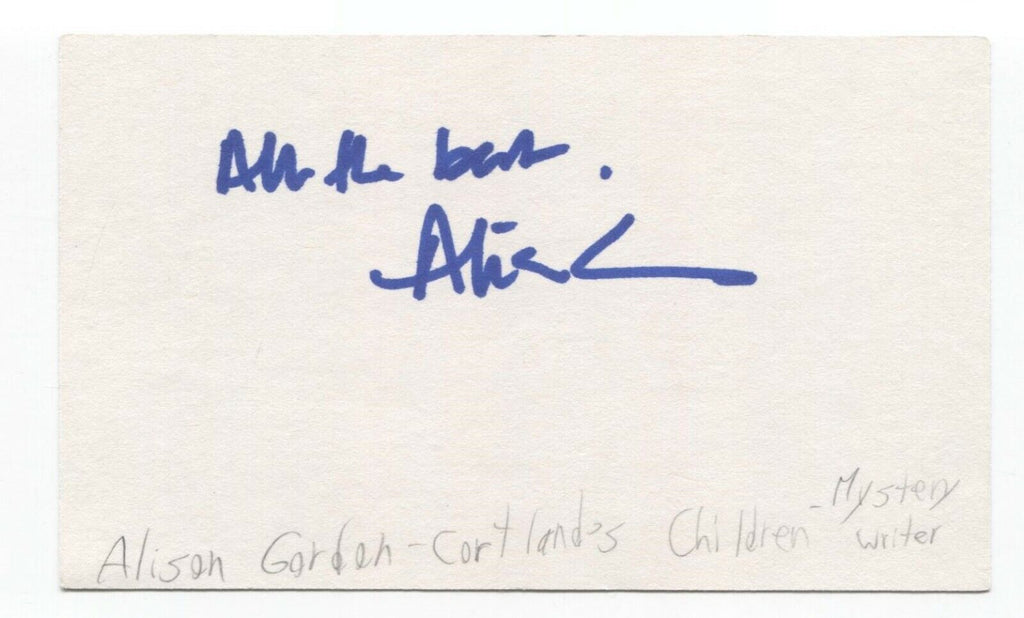 All the best.
Alison
Alison Gordon - Cortland's Children - Mystery
writer